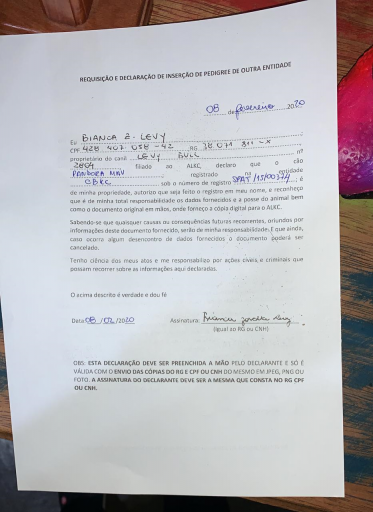 REQUISIÇÃO E DECLARAÇÃO DE INSERÇÃO DE PEDIGREE DE OUTRA ENTIDADE
08 de fevereiro 2020
Eu BIANCA Z. LEVY
CPF 428 407 058-42 RG 38 071 311-X
proprietário do canil LEVY BULL nº
2804 filiado ao ALKC, declaro que o cão
PANDORA MAV registrado na entidade
CBKC sob o número de registro é
de minha propriedade, autorizo que seja feito o registro em meu nome, e reconheço
que é de minha total responsabilidade os dados fornecidos e a posse do animal bem
como o documento original em mãos, onde forneço a cópia digital para o ALKC.
Sabendo-se que quaisquer causas ou consequências futuras recorrentes, oriundos por
informações deste documento fornecido, serão de minha responsabilidade. E que ainda,
caso ocorra algum desencontro de dados fornecidos o documento poderá ser
cancelado.
Tenho ciência dos meus atos e me responsabilizo por ações cíveis e criminais que
possam recorrer sobre as informações aqui declaradas.
O acima descrito é verdade e dou fé
Data 08 / 02 /2020 Assinatura:
(Igual ao RG ou CNH)
OBS: ESTA DECLARAÇÃO DEVE SER PREENCHIDA A MÃO PELO DECLARANTE E SÓ É
VÁLIDA COM O ENVIO DAS CÓPIAS DO RG E CPF OU CNH DO MESMO EM JPEG, PNG OU
FOTO. A ASSINATURA DO DECLARANTE DEVE SER A MESMA QUE CONSTA NO RG CPF
OU CNH.